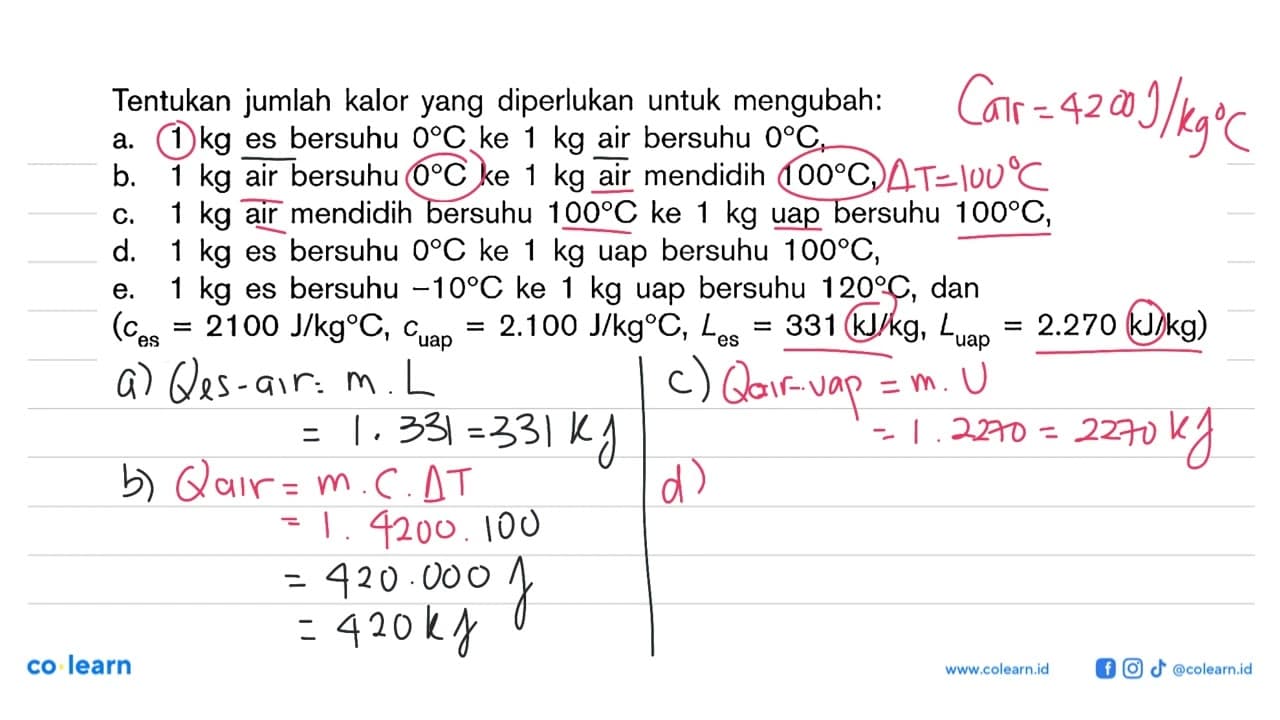 Tentukan jumlah kalor yang diperlukan untuk mengubah:
Cair = 4200 J/kg°C
a. 1 kg es bersuhu 0°C ke 1 kg air bersuhu 0°C,
b. 1 kg air bersuhu 0°C ke 1 kg air mendidih 100°C, ΔT=100°C
c. 1 kg air mendidih bersuhu 100°C ke 1 kg uap bersuhu 100°C,
d. 1 kg es bersuhu 0°C ke 1 kg uap bersuhu 100°C,
e. 1 kg es bersuhu −10°C ke 1 kg uap bersuhu 120°C, dan
(c_es = 2100 J/kg°C, c_uap = 2.100 J/kg°C, L_es = 331 kJ/kg, L_uap = 2.270 kJ/kg)
a) Qes-air = m . L
= 1 . 331 = 331 kJ
b) Qair = m . C . ΔT
= 1 . 4200 . 100
= 420.000 J
= 420 kJ
c) Qair-uap = m . U
= 1 . 2270 = 2270 kJ
d)
co·learn
www.colearn.id
@colearn.id